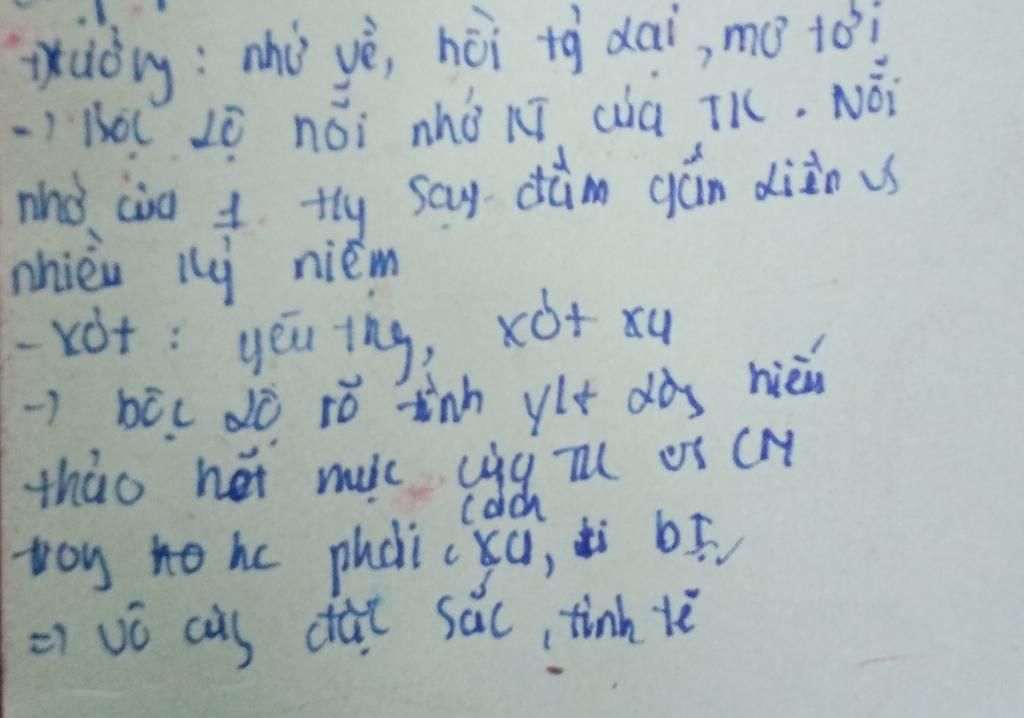 tưởng : nhớ về, hồi tg lại, mơ tới
-> Bộc lộ nỗi nhớ KT của TK . Nỗi
nhớ của 1 ty say đắm gắn liền vs
nhiều kỷ niệm
- xót : yêu thg, xót xa
-> bộc lộ rõ tình lòg hiếu
thảo hết mực của TK vs CM
trog ho hc phải cách xa, bị
=> vô cùg đặc sắc, tinh tế